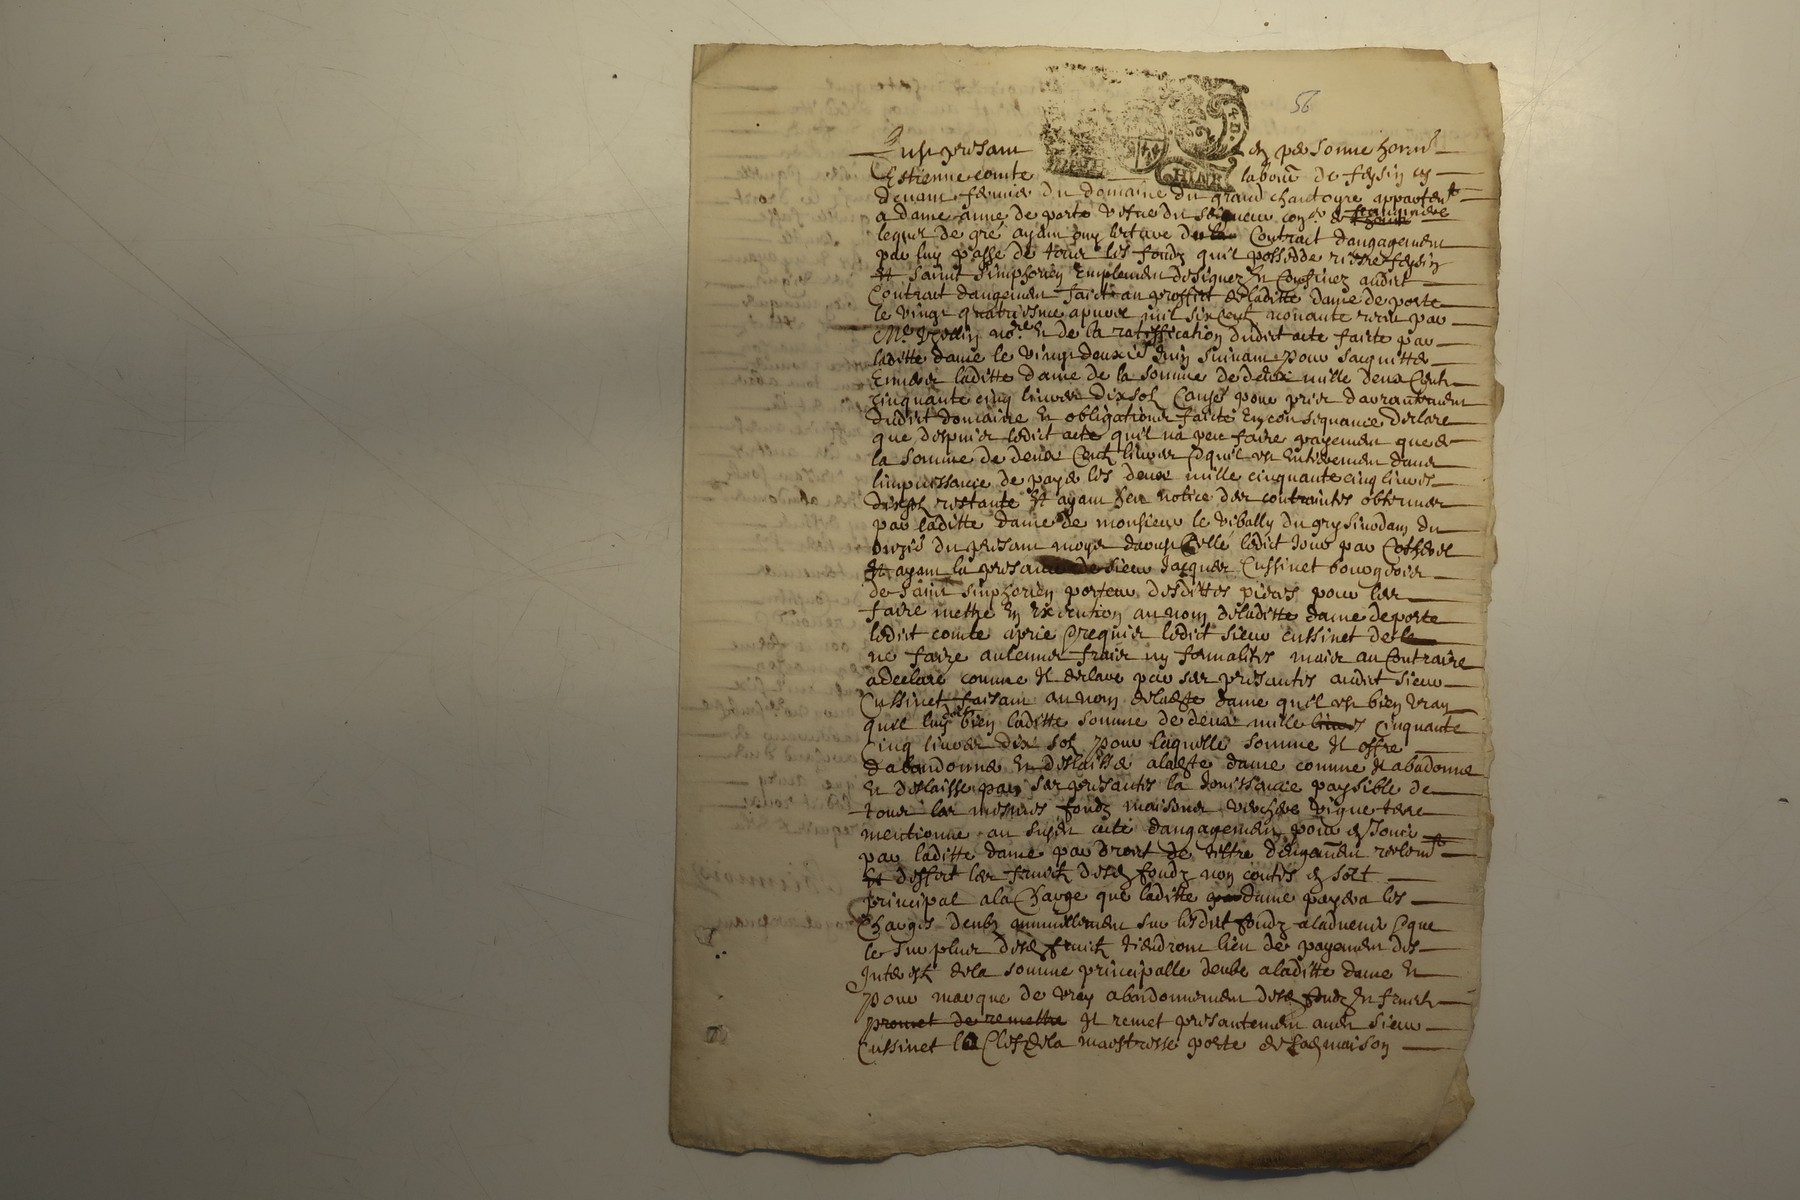 56
4 D.
en personne honn.
Estienne comte labour. de feysin cy
devant fermier du domaine du grand chantoyre appartent
a dame anne de porte vefve du
lequel de gré ayant ouy lecture du Contrait dangagement
par luy passé de tous les fondz quil possedde riesre feysin
Et saint simphorien emplement designez Et Confinez audict
Contrait dangement faict au proffict de laditte dame de porte
le vingt quatriesme apvril mil six cent nonante par
Me no.re Et de la ratiffication dudict acte faicte par
laditte dame le vingt deuxie Juin suivant pour sacquitter
Envers laditte dame de la somme de deux mille deux Centz
cinquante cinq livres dix sol Causé pour prix
dudict domaine Et obligations faicte En consequance declare
que despuis ledict acte quil na peu faire payement que de
la somme de deux Centz livres Et quil est Entierement dans
limpuissance de payer les deux mille cinquante cinq livres
dix sol restante Et ayant heu notice des contraintes obtenues
par laditte dame de monsieur le vibally du gresivodam du
onzie du presant moys daoust Cellé ledict Jour par
Et ayant la presance de sieur Jacques Cussinet bourgeois
de saint simphorien porteur desdittes pieces pour les
faire mettre En Execution au nom de laditte dame de porte
ledict comte a prié Et requis ledict sieur cussinet de le
ne faire aulcuner fraix ny formalites mais au Contraire
a declaré comme Il declare par ses presantes audict sieur
Cussinet faisant au nom de ladte dame quil est bien vray
quil luy doibt bien laditte somme de deux mille livres cinquante
cinq livres dix sol pour laquelle somme Il offre
dabandonner Et deslaisser a ladte dame comme Il abadonne
Et deslaisse par ses presantes la Jouissance paysible de
tous les mesmes fondz maisons verchere vigne terre
mentionné au susdit acte dangagement pour en Jouir
par laditte dame par droit de tiltre dengament
Et les fruictz desd fondz non contés en sort
principal a la Charge que laditte dame payera les
Charges deubz annuellement sur lesdict fondz a ladvenir Et que
le surplus desd fruictz tiendront lieu de payement des
Interestz de la somme principalle deube a laditte dame Et
pour marque de vray abandonnement desd fondz Et fruictz
promet de remettre Il remet presantement audt sieur
Cussinet la Clef de la maistresse porte de sad maison